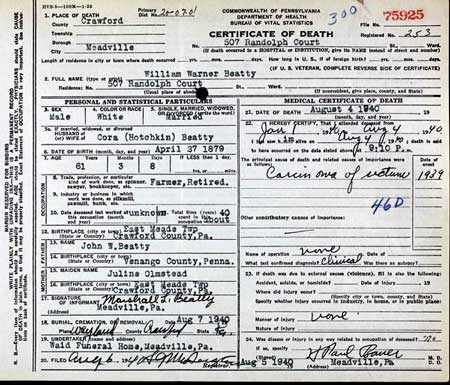 HVS-5—100M—1-39
COMMONWEALTH OF PENNSYLVANIA
DEPARTMENT OF HEALTH
BUREAU OF VITAL STATISTICS
300
75925
1. PLACE OF DEATH
County of Crawford
Primary
Dist. No.
CERTIFICATE OF DEATH
File No.
Registered No. 253
Meadville
507 Randolph Court
St., Ward.
(If death occurred in a HOSPITAL or INSTITUTION, give its NAME instead of street and number)
Length of residence in city or town where death occurred yrs. mos. days. How long in U. S., if of foreign birth? yrs. mos. days.
(IF U. S. VETERAN, COMPLETE REVERSE SIDE OF CERTIFICATE)
2. FULL NAME William Warner Beatty
Residence: No. 507 Randolph Court St., Ward.
(Usual place of abode) (If nonresident, give city, county, and State)
PERSONAL AND STATISTICAL PARTICULARS
3. SEX Male
4. COLOR OR RACE White
5. SINGLE, MARRIED, WIDOWED, OR DIVORCED (write the word) Married
5a. If married, widowed, or divorced
HUSBAND of
(or) WIFE of Cora (Hotchkin) Beatty
6. DATE OF BIRTH April 27 1879
7. AGE Years 61 Months 3 Days 8 If LESS than 1 day, hrs. or min.
8. Trade, profession, or particular kind of work done, as spinner, sawyer, bookkeeper, etc. Farmer, Retired.
9. Industry or business in which work was done, as silk mill, sawmill, bank, etc.
10. Date deceased last worked at this occupation (month and year) unknown
11. Total time (years) spent in this occupation 40 about
12. BIRTHPLACE (city or town) East Meade Twp
(State or County) Crawford County, Pa.
13. NAME John W. Beatty
14. BIRTHPLACE (city or town)
(State or County) Venango County, Penna.
15. MAIDEN NAME Julina Olmstead
16. BIRTHPLACE (city or town) East Meade Twp
(State or County) Crawford County, Pa.
17. SIGNATURE OF INFORMANT Marshall L. Beatty
Meadville, Pa.
18. BURIAL, CREMATION, OR REMOVAL Date Aug 7 1940
Place Wayland County Crawford State Pa.
19. UNDERTAKER (name and address)
Waid Funeral Home, Meadville, Pa.
20. FILED Aug 6, 1940
Registrar.
MEDICAL CERTIFICATE OF DEATH
21. DATE OF DEATH August 4 1940
22. I HEREBY CERTIFY, That I attended deceased from
Jan 1 1940 to Aug 4 1940
I last saw him alive on Aug 4 1940; death is said
to have occurred on the date stated above, at 9:10 P. m.
The principal cause of death and related causes of importance were as follows:
Date of onset
Carcinoma of rectum 1939
46D
Other contributory causes of importance:
Name of operation none Date of
What test confirmed diagnosis? Clinical Was there an autopsy?
23. If death was due to external causes (violence), fill in also the following:
Accident, suicide, or homicide? Date of injury 19
Where did injury occur?
(Specify city or town, county, and State)
Specify whether injury occurred in industry, in home, or in public place:
Manner of injury none
Nature of injury
24. Was disease or injury in any way related to occupation of deceased? no
If so, specify
(Signed) M. D.
Aug 5 1940 (Address) Meadville, Pa.